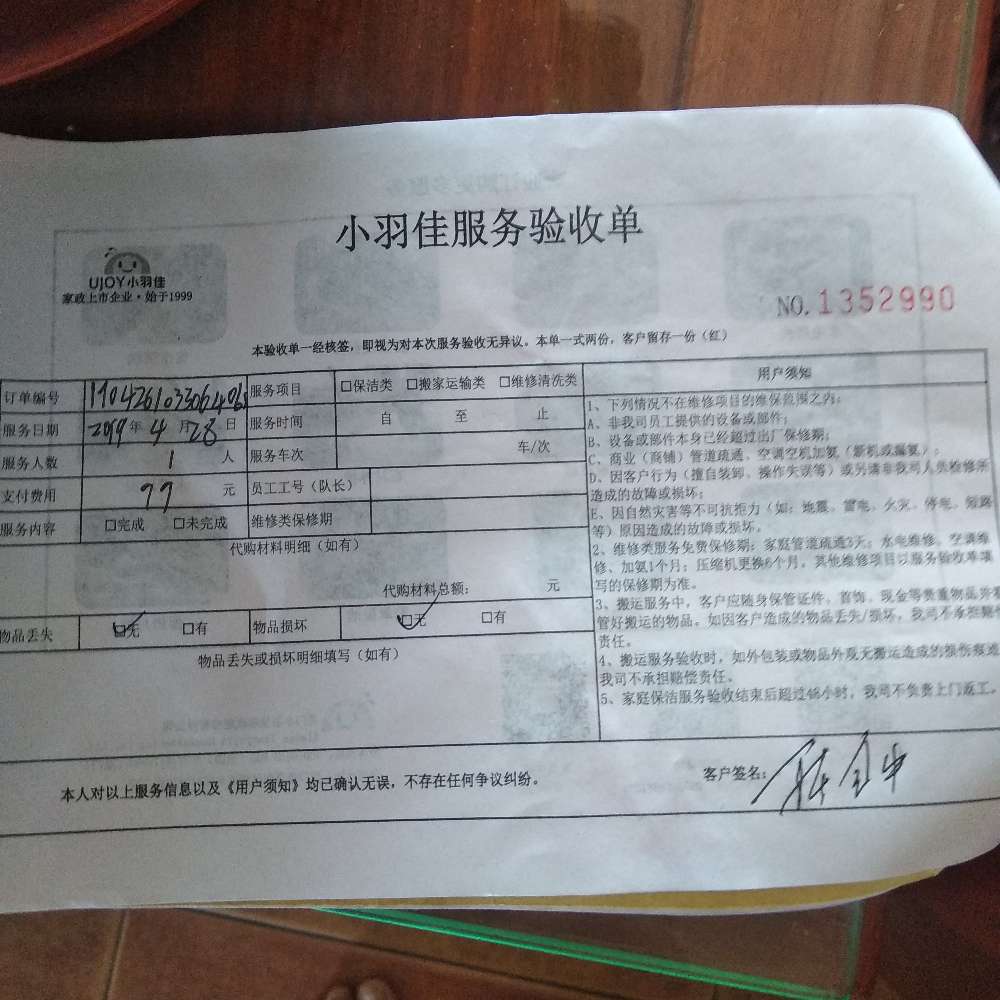 小羽佳服务验收单
UJOY小羽佳
家政上市企业·始于1999
NO.1352990
本验收单一经核签，即视为对本次服务验收无异议。本单一式两份，客户留存一份（红）
订单编号 服务项目 □保洁类 □搬家运输类 □维修清洗类
服务日期 年 4 月 28 日 服务时间 自 至 止
服务人数 1 人 服务车次 车/次
支付费用 77 元 员工工号（队长）
服务内容 □完成 □未完成 维修类保修期
代购材料明细（如有）
代购材料总额： 元
物品丢失 □无 □有 物品损坏 □无 □有
物品丢失或损坏明细填写（如有）
用户须知
1、下列情况不在维修项目的维保范围之内：
A、非我司员工提供的设备或部件；
B、设备或部件本身已经超过出厂保修期；
C、商业（商铺）管道疏通、空调空机加氨（新机或漏氨）；
D、因客户行为（擅自装卸、操作失误等）或另请非我司人员检修所
造成的故障或损坏；
E、因自然灾害等不可抗拒力（如：地震、雷电、火灾、停电、短路
等）原因造成的故障或损坏。
2、维修类服务免费保修期：家庭管道疏通3天；水电维修、空调维
修、加氨1个月；压缩机更换6个月。其他维修项目以服务验收单填
写的保修期为准。
3、搬运服务中，客户应随身保管证件、首饰、现金等贵重物品并看
管好搬运的物品。如因客户造成的物品丢失/损坏，我司不承担赔
责任。
4、搬运服务验收时，如外包装或物品外观无搬运造成的损伤痕迹
我司不承担赔偿责任。
5、家庭保洁服务验收结束后超过48小时，我司不负责上门返工。
本人对以上服务信息以及《用户须知》均已确认无误，不存在任何争议纠纷。
客户签名：